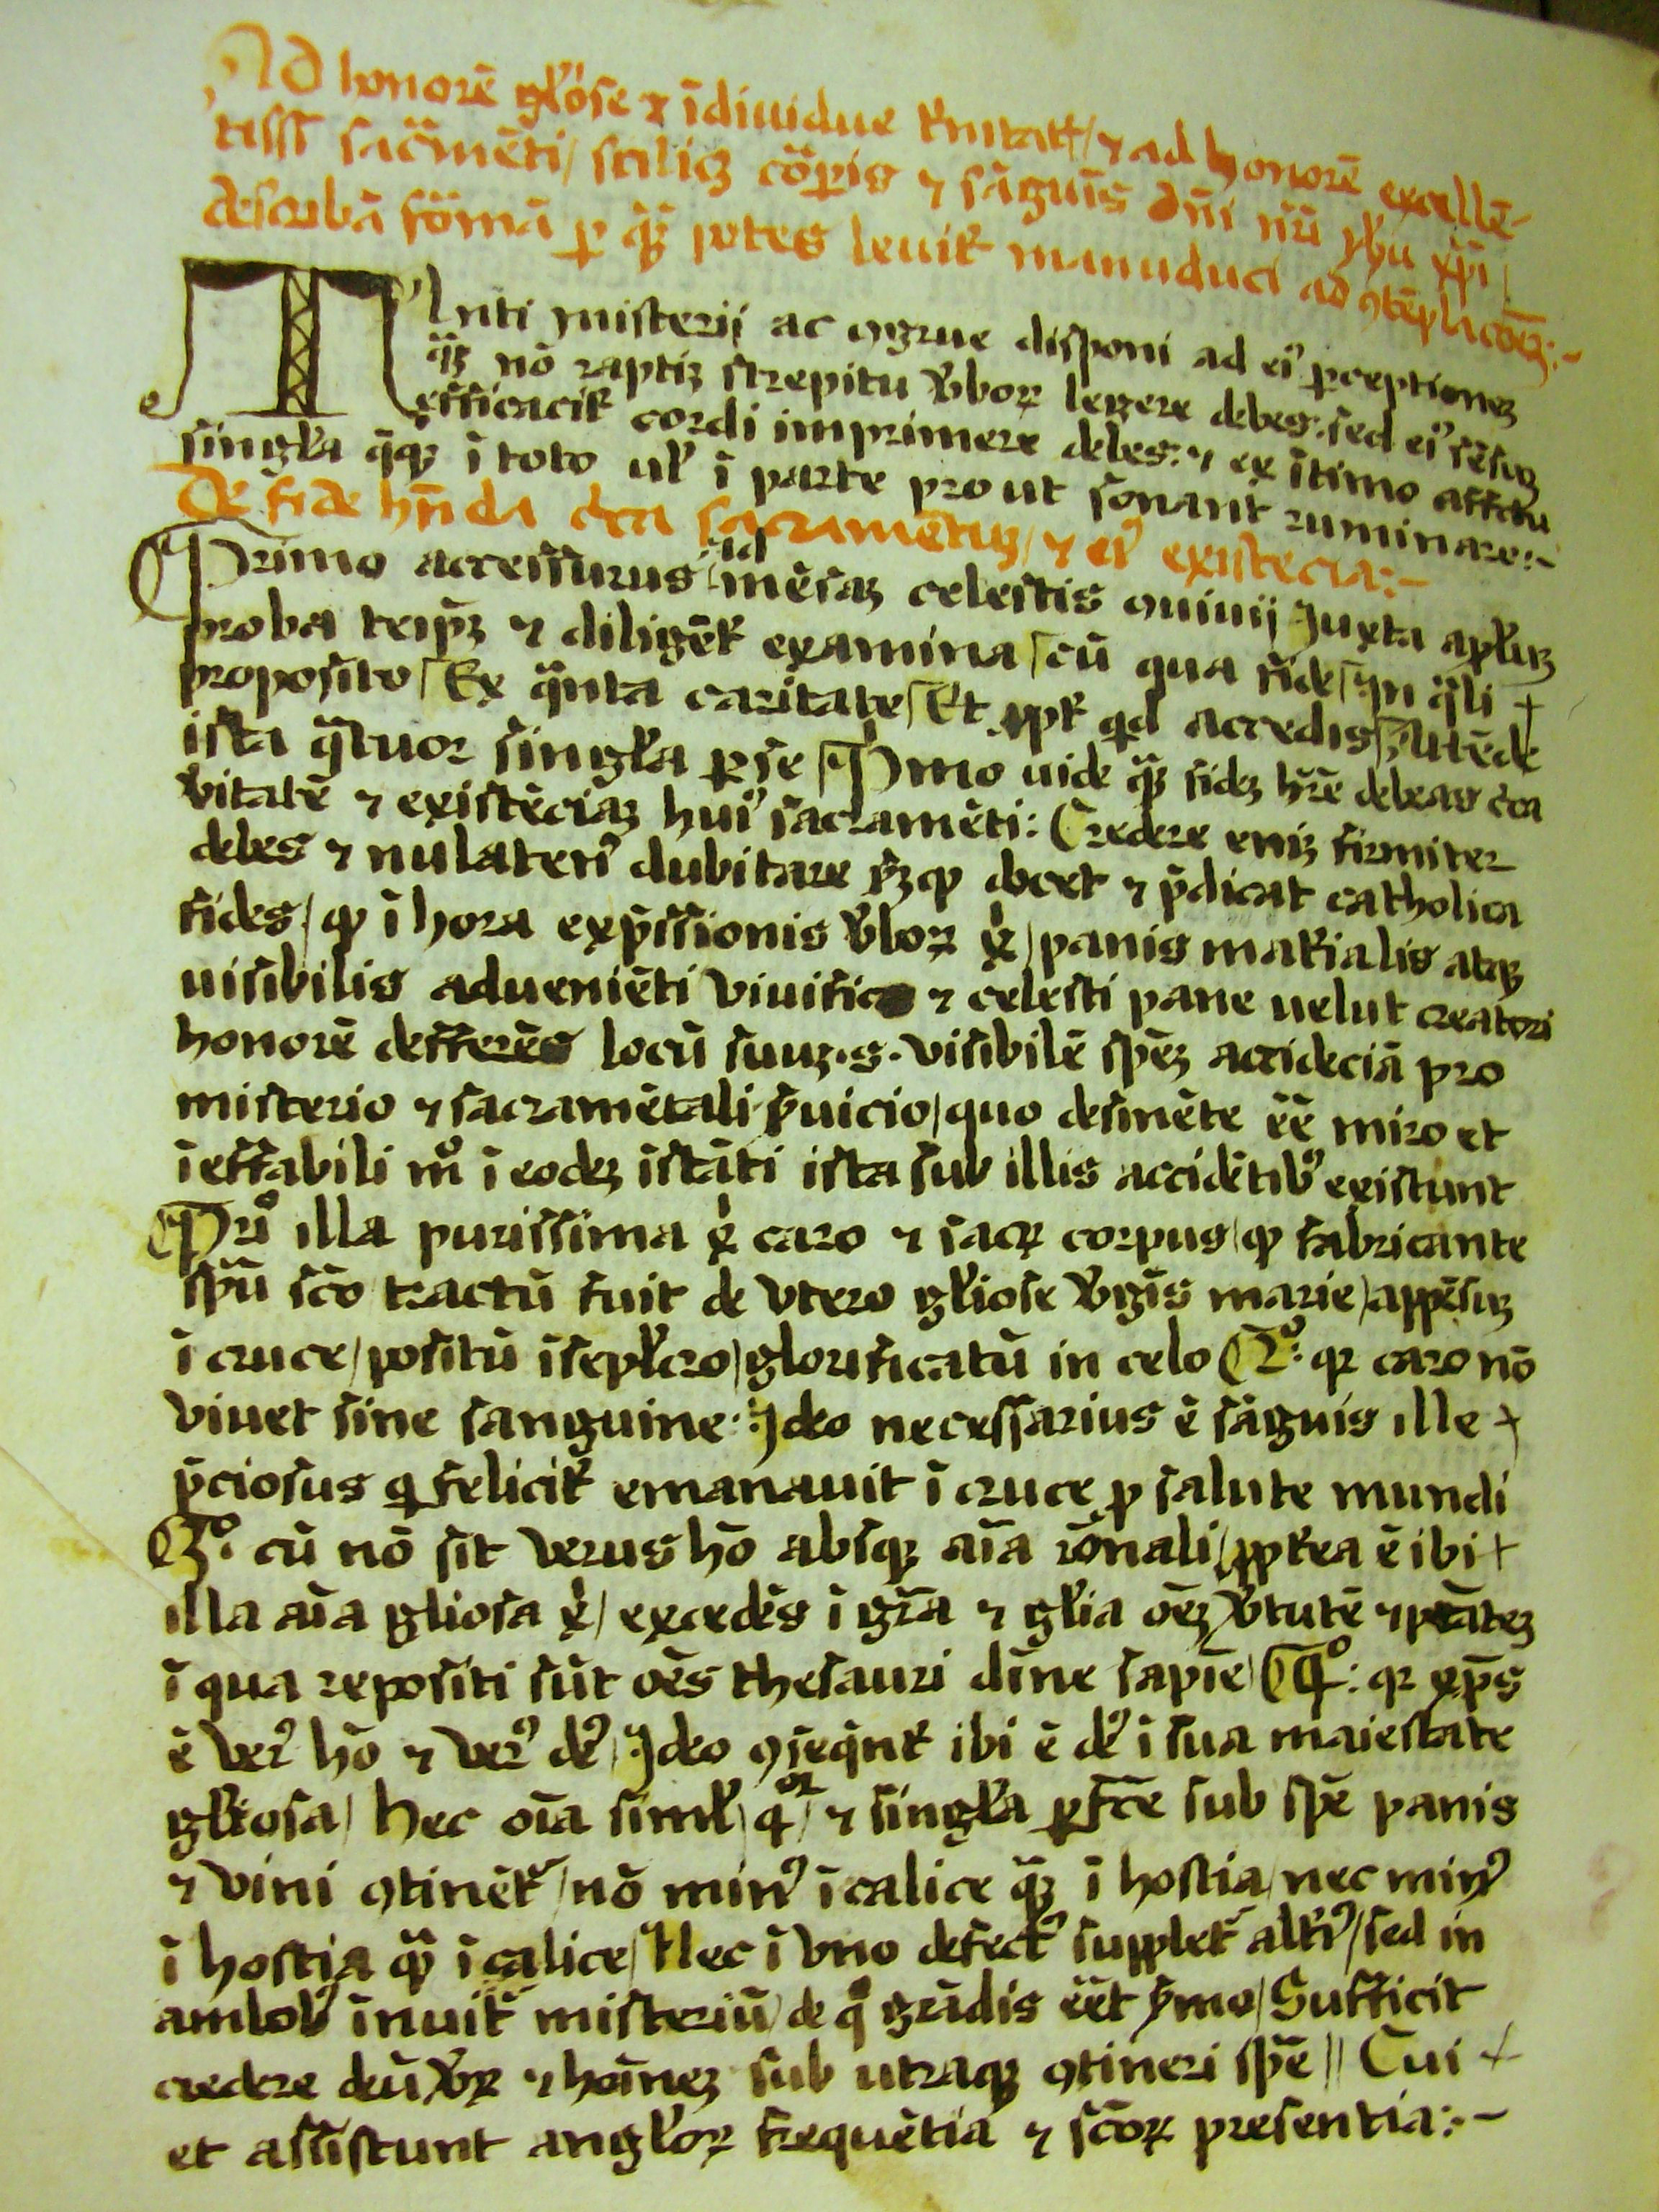 Ad honorē gl'ose ⁊ īdiuidue t'nitat(is) / ⁊ ad honorē excellē-
tissi sacr̄mēti / scilicꝫ cōꝑis ⁊ sāguis dn̄i nr̄i yh'u xp̄i /
describā formā ꝑ quā potes leuit' manuduci ad ꝯtēplac̄oēꝫ :~
Anti misterij ac ꝯgrue disponi ad ei' ꝑceptionēꝫ
quāꝫ nō raptiꝫ strepitu v'boꝝ legere debes . sed ei' sēsuꝫ
efficacit' cordi imprimere debes . ⁊ ex ītimo affectu
singl'a q̄qꝫ ī toto ul' ī parte prout sonant ruminare :~
De fide hn̄da circa sacramētuꝫ / ⁊ ei' existēcia :~
Primo accessurus ad mēsaꝫ celestis ꝯuiuij Juxta apl'uꝫ
proba teip̄ꝫ ⁊ diligēt' examina / cū qua fide / Jn q̄li
proposito / Ex q̄nta caritate / Et ꝓpt' qd accedis / Attēde
ista q̄tuor singl'a ꝑ se / Pͥmo uide quāꝫ fidēꝫ hr̄e debeas circa
v'itatē ⁊ existēciaꝫ hui' sacramēti : Credere eniꝫ firmiter
debes ⁊ nulaten' dubitare sꝫ ꝙ docet ⁊ p̄dicat catholica
fides / ꝙ ī hora exp̄ssionis v'boꝝ xͥ / panis mat'ialis atqꝫ
uisibilis adueniēti viuifico ⁊ celesti pane uelut creatori
honorē defferēs locū suuꝫ .s. visibilē spēꝫ accideciā pro
misterio ⁊ sacramētali s'uicio / quo desinēte ēē miro et
ieffabili mͦ ī eodeꝫ īstāti ista sub illis accidētib' existunt
Priͦ illa purissima xͥ caro ⁊ sacꝝ corpus / ꝙ fabricante
sp̄u sc̄o tractū fuit de vtero gl'iose v'gīs marie / appēsuꝫ
ī cruce / positū ī sepl'cro / glorificatū in celo 2ͦ : qꝛ caro nō
viuet sine sanguine : Jdeo necessarius ē sāguis ille
p̄ciosus q felicit' emanauit ī cruce ꝓ salute mundi
3ͦ . cū nō sit verus hō absqꝫ aīa rōnali / ꝓpt'ea ē ibi
illa aīa gliosa xͥ / excedēs ī gr̄a ⁊ gl'ia oēꝫ v'tutē ⁊ ptātēꝫ
ī qua repositi sūt oēs thesauri dīne sapīe / qͦ : qꝛ xp̄s
ē ver' hō ⁊ ver' de' / Jdeo ꝯseqn̄t' ibi ē de' ī sua maiestate
gl'iosa / hec oīa siml' / q͛ / ⁊ singl'a ꝑfc̄e sub spē panis
⁊ vini ꝯtinēt' / nō min' ī calice quāꝫ ī hostia / nec min'
ī hostia quā ī calice / Nec ī vno defect' supplet' alt'i' / sed in
ambob' īnuit' misteriū / de q̊ grādis ēēt s'mo / Sufficit
credere deū v'ꝝ ⁊ hoīneꝫ sub utraqꝫ ꝯtineri spē // Cui
et assistunt angl'oꝝ frequētia ⁊ sc̄oꝝ presentia :~